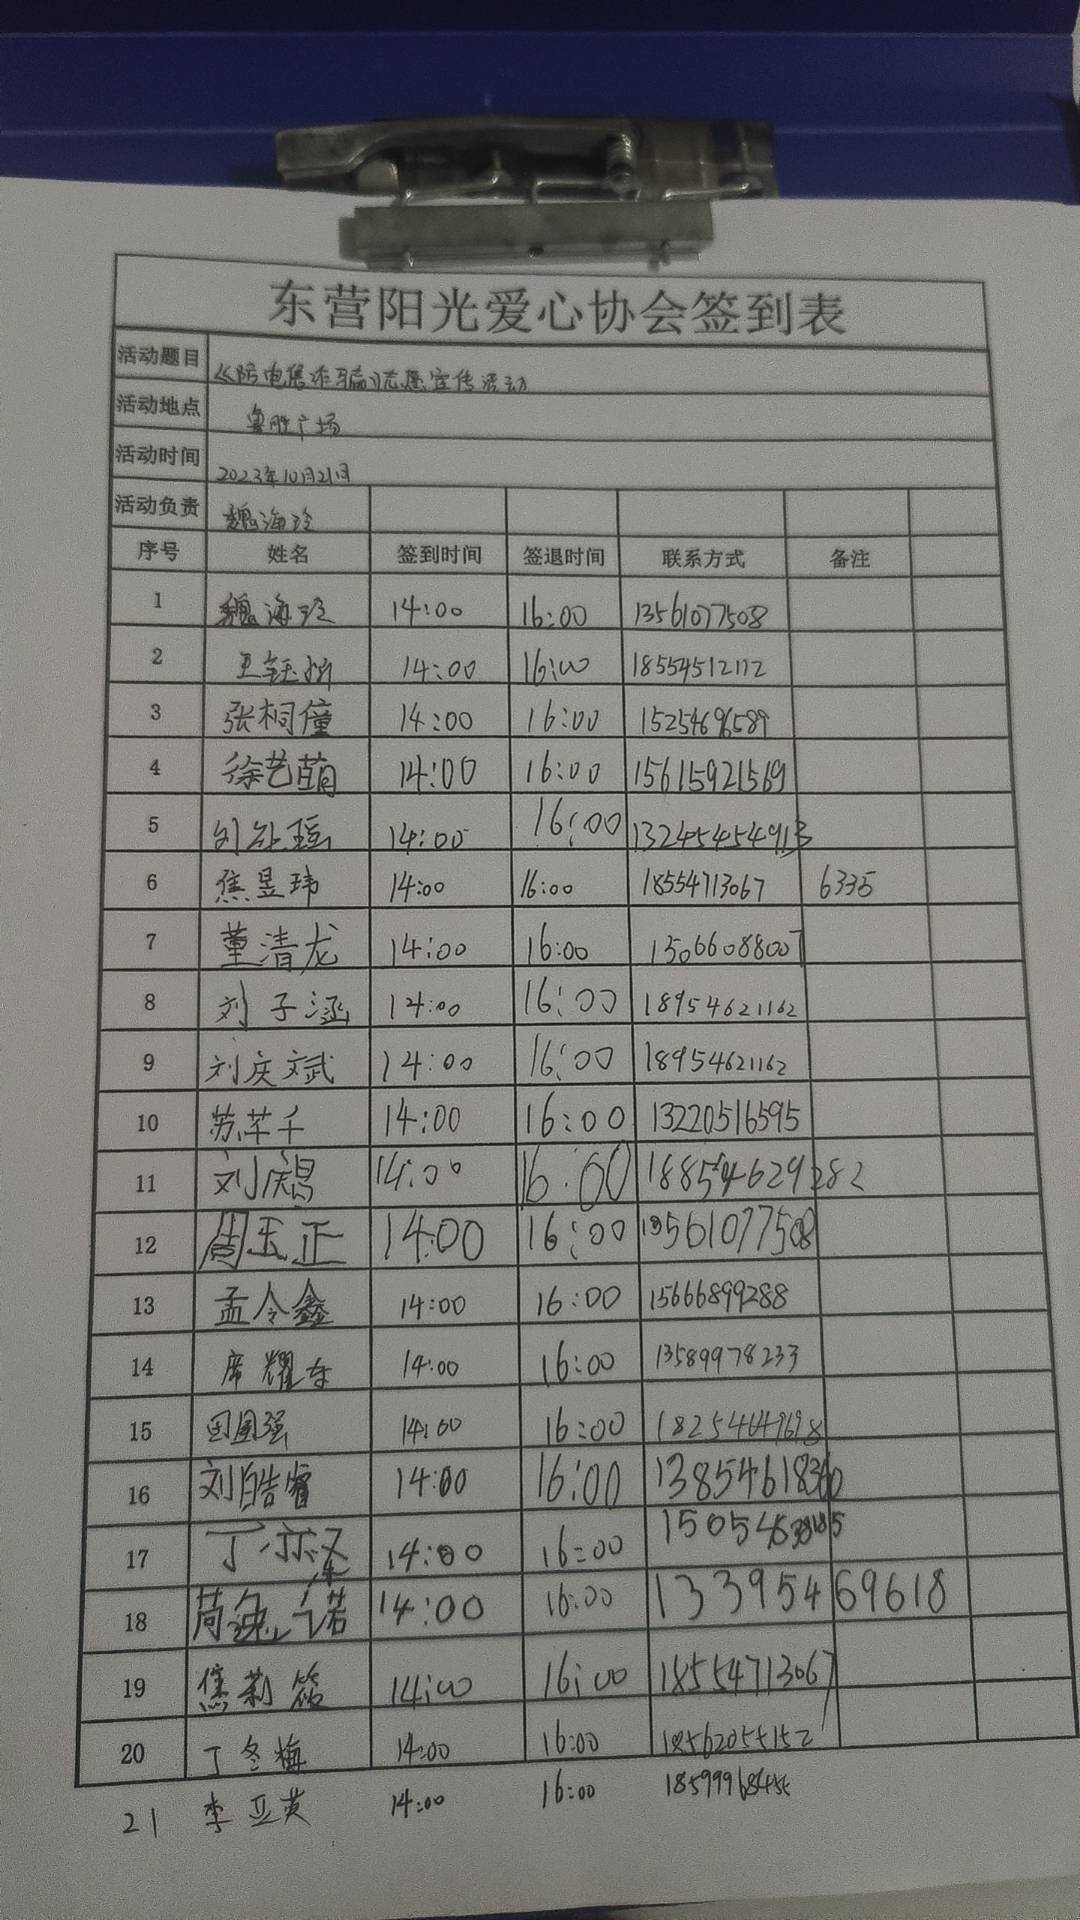 东营阳光爱心协会签到表
活动题目 《防电信诈骗》志愿宣传活动
活动地点 鲁胜广场
活动时间 2023年10月21日
活动负责 魏海玲
序号 姓名 签到时间 签退时间 联系方式 备注
1 魏海玲 14:00 16:00 13561077508
2 王钰妍 14:00 16:00 18554512112
3 张桐僮 14:00 16:00 15254696589
4 徐艺萌 14:00 16:00 15615921569
5 14:00 16:00 13245454913
6 焦昱玮 14:00 16:00 18554713067 6335
7 董清龙 14:00 16:00 15066088007
8 刘子涵 14:00 16:00 18954621162
9 刘庆斌 14:00 16:00 18954621162
10 苏芊千 14:00 16:00 13220516595
11 14:00 16:00 18854629282
12 周玉正 14:00 16:00 13561077508
13 孟令鑫 14:00 16:00 15666899288
14 席耀东 14:00 16:00 13589978233
15 田国强 14:00 16:00
16 刘皓睿 14:00 16:00 13854618360
17 14:00 16:00
18 14:00 16:00 13395469618
19 焦莉筱 14:00 16:00 18554713067
20 丁冬梅 14:00 16:00 18562055152
21 李亚英 14:00 16:00